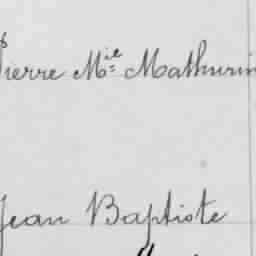 Pierre Mie Mathurin
Jean Baptiste